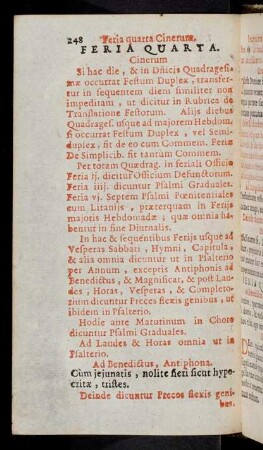 248 Feria quarta Cinerum.
FERIA QUARTA.
Cinerum
Si hac die, & in Dñicis Quadragesi-
mæ occurrat Festum Duplex, transfer-
tur in sequentem diem similiter non
impeditam, ut dicitur in Rubrica de
Translatione Festorum. Alijs diebus
Quadrages. usque ad majorem Hebdom.
si occurrat Festum Duplex, vel Semi-
duplex, fit de eo cum Commem. Feriæ
De Simplicib. fit tantum Commem.
Per totam Quadrag. in feriali Officio
Feria ij. dicitur Officium Defunctorum.
Feria iiij. dicuntur Psalmi Graduales.
Feria vj. Septem Psalmi Pœnitentiales
cum Litaniis, præterquam in Ferijs
majoris Hebdomadæ; quæ omnia ha-
bentur in fine Diurnalis.
In hac & sequentibus Ferijs usque ad
Vesperas Sabbati, Hymni, Capitula,
& alia omnia dicuntur ut in Psalterio
per Annum, exceptis Antiphonis ad
Benedictus, & Magnificat, & post Lau-
des, Horas, Vesperas, & Completo-
rium dicuntur Preces flexis genibus, ut
ibidem in Psalterio.
Hodie ante Matutinum in Choro
dicuntur Psalmi Graduales.
Ad Laudes & Horas omnia ut in
Psalterio.
Ad Benedictus, Antiphona.
Cùm jejunatis, nolite fieri sicut hypo-
critæ, tristes.
Deinde dicuntur Preces flexis geni-
bus.